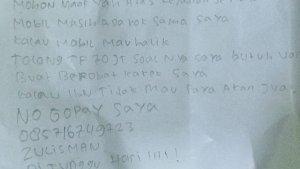 MOHON MAAF
MOBIL MASih ADA PAK SAMA SAYA
KALAU MOBIL MAU BALIK
TOLONG TF 70 JT SOAL NYA SAYA BUTUH
BUAT BEROBAT SAYA
KALAU IBU TIDAK MAU SAYA AKAN JUA
NO GOPAY SAYA
085716749723
ZULISMAN
DI TUNGGU HARI INI!